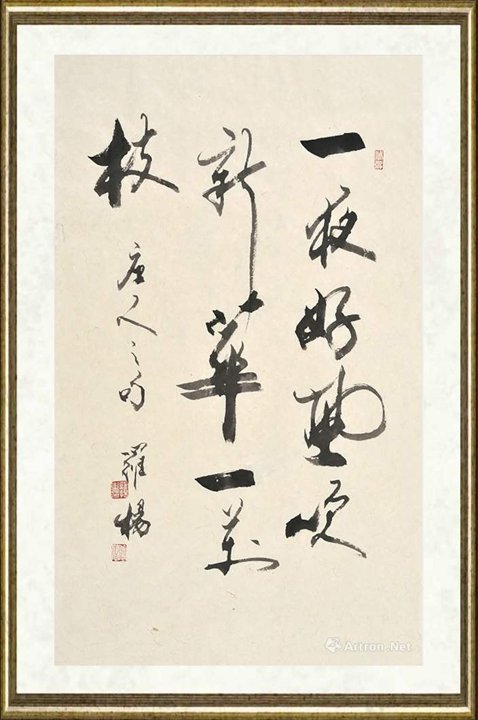 一夜好風吹
新華一萬
枝
唐人之句 羅楊
Artron.Net